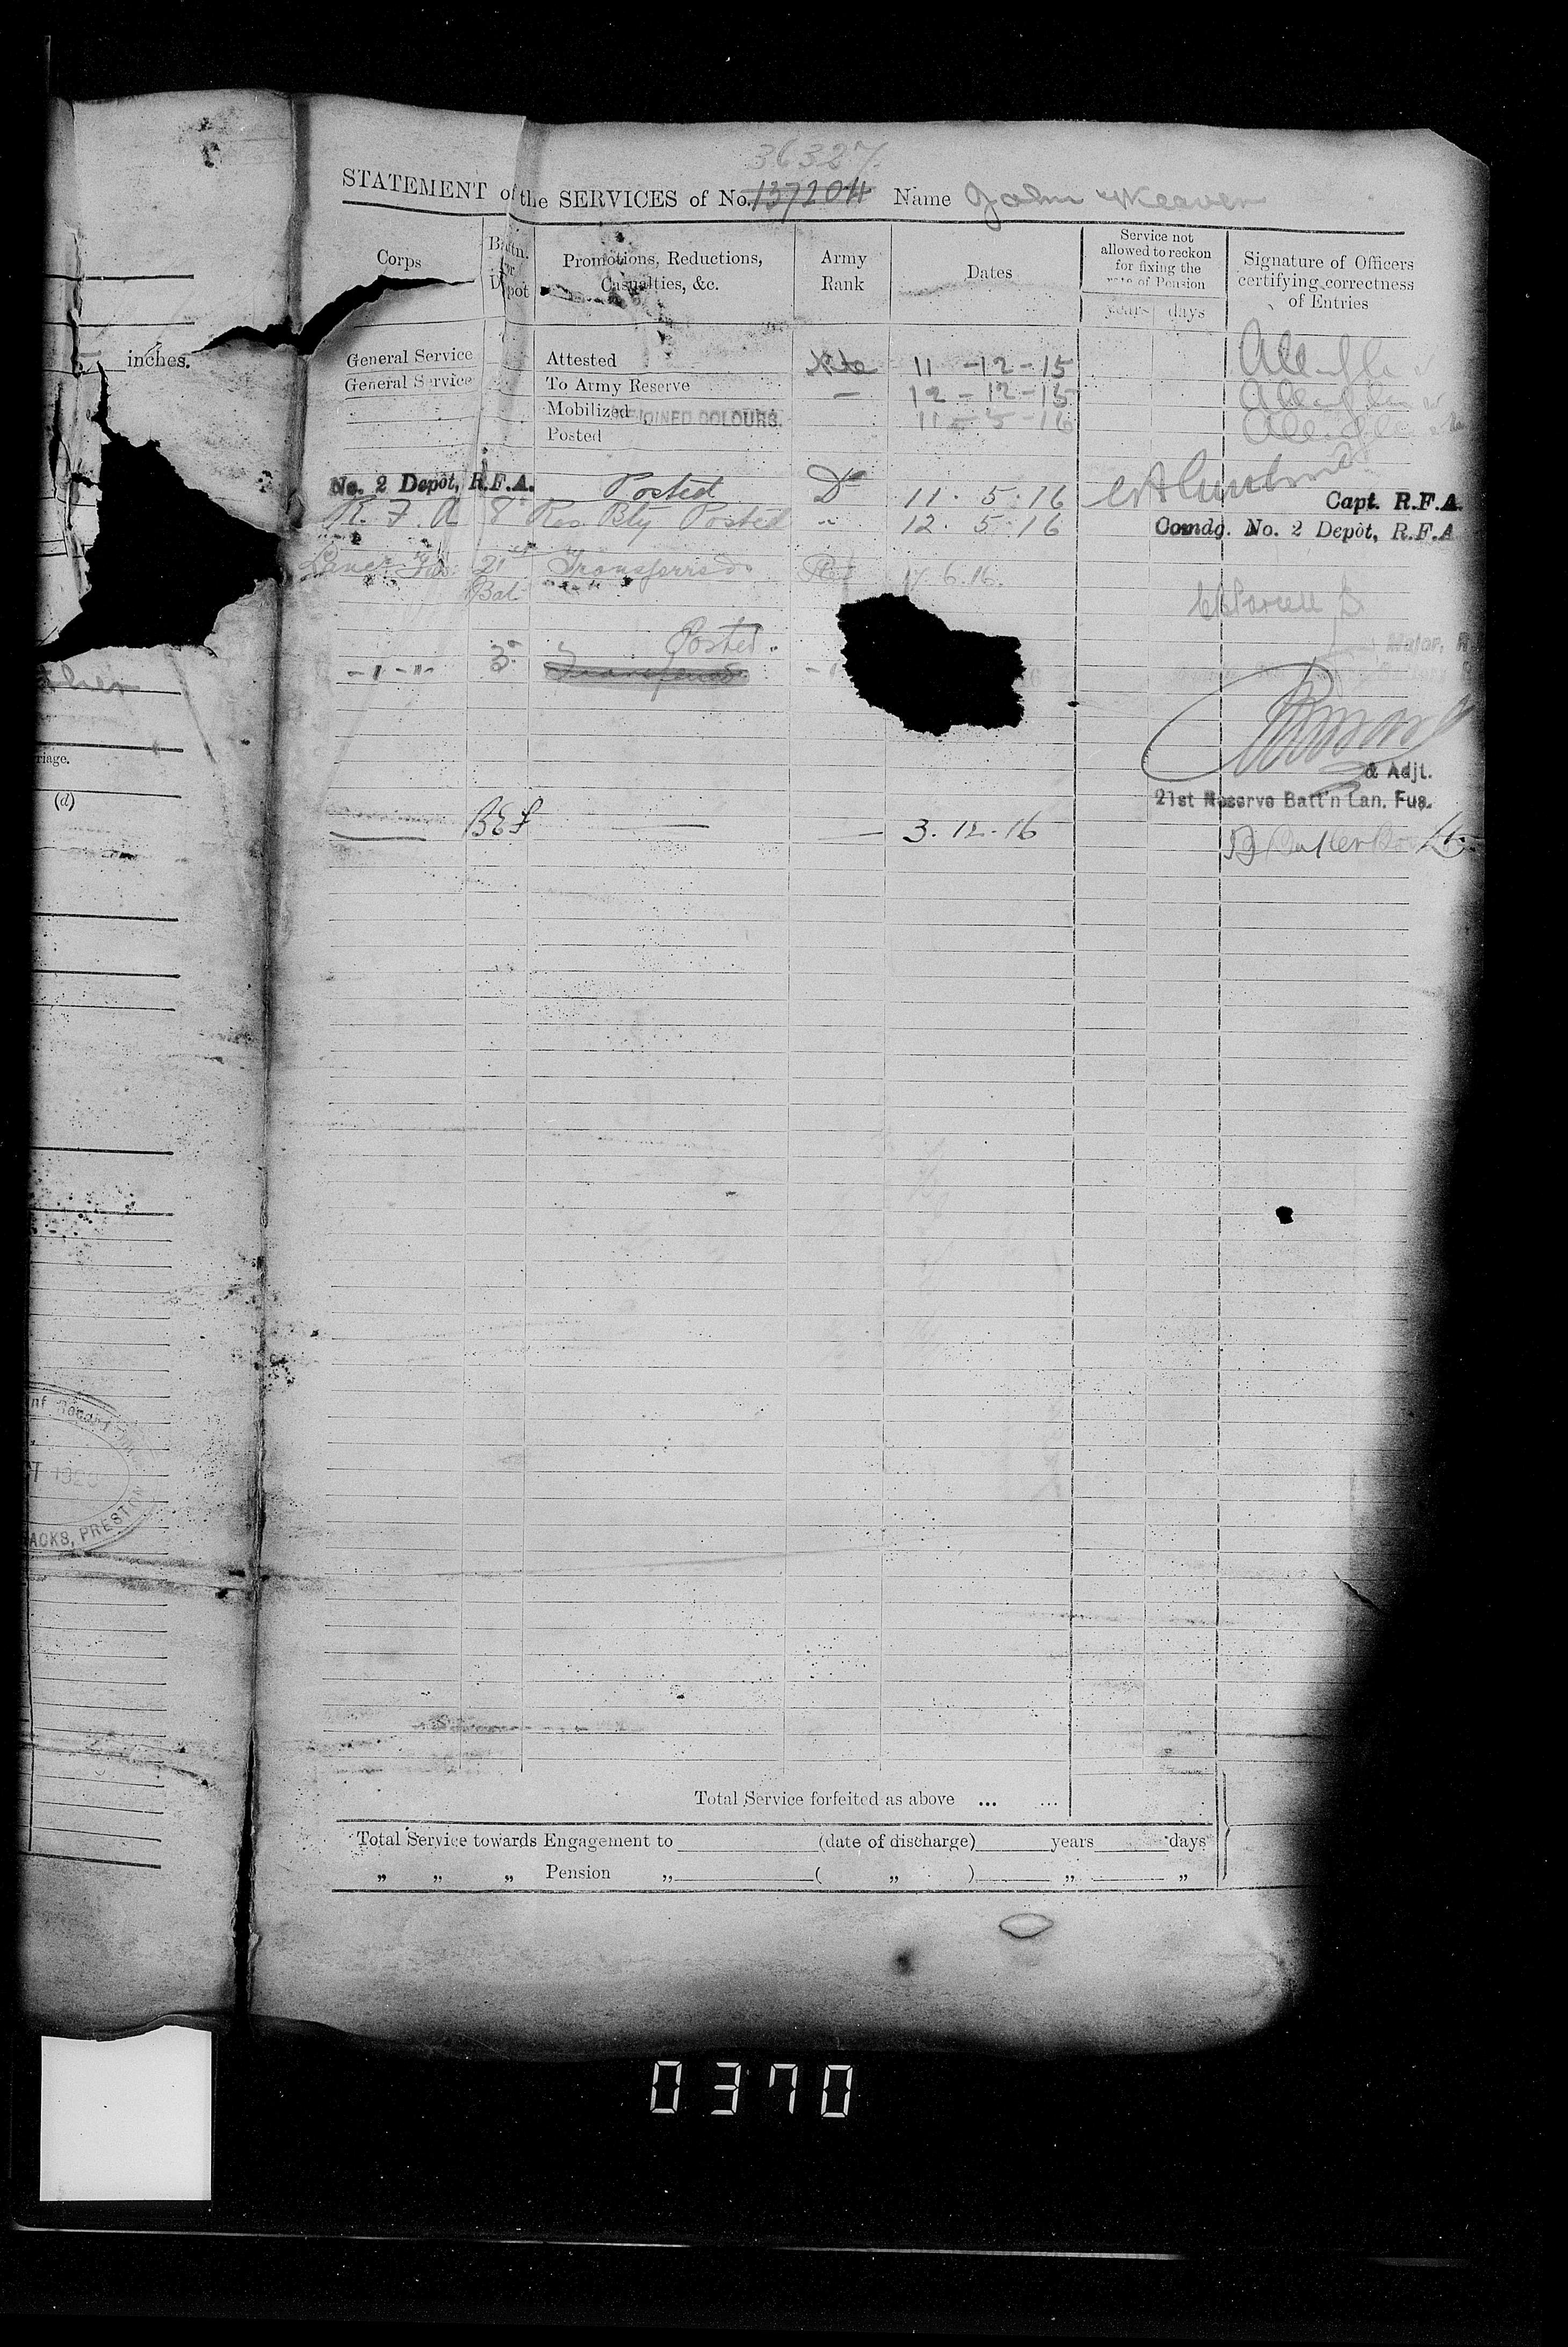 36327.
STATEMENT of the SERVICES of No. 137204 Name John Weaver
Corps
Battn. or Depot
Promotions, Reductions, Casualties, &c.
Army Rank
Dates
Service not allowed to reckon for fixing the rate of Pension
years days
Signature of Officers certifying correctness of Entries
inches.
General Service Attested 11-12-15
General Service To Army Reserve — 12-12-15
Mobilized REJOINED COLOURS. 11-5-16
Posted
No. 2 Depôt, R.F.A. Posted Dr 11.5.16
Capt. R.F.A.
R.F.A 8 Res Bty Posted " 12.5.16
Comdg. No. 2 Depôt, R.F.A
Lanc. Fus: 21st Transferred Pte 17.6.16.
Bat
Major, R
Posted.
-"-"- 3 Transferred
ther
riage.
& Adjt.
(d)
21st Reserve Batt'n Lan. Fus.
BEF — — 3.12.16
Lt.
Inf Record
T 1920
RACKS, PRESTON
Total Service forfeited as above ... ...
Total Service towards Engagement to (date of discharge) years days
„ „ „ Pension „ ( „ ) „ „
0370